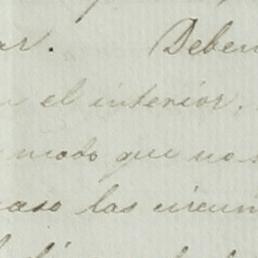 ar. Deben
el interior.
modo que no
caso las circun